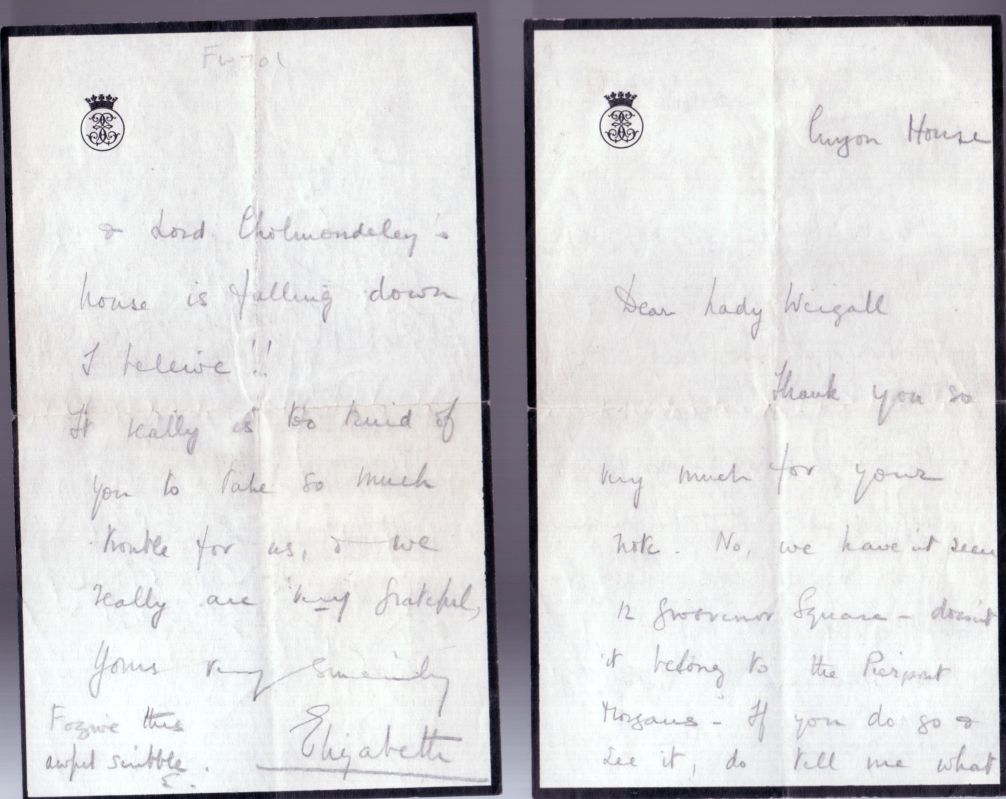 Curzon House
Dear Lady Weigall
Thank you so
very much for your
note. No, we have'nt seen
12 Grosvenor Square - doesn't
it belong to the Pierpont
Morgans - If you do go &
see it, do tell me what
& Lord Cholmondeley's
house is falling down
I beleive!!
It really is too kind of
you to take so much
trouble for us, & we
really are very grateful,
Yours very sincerely
Elizabeth
Forgive this
awful scribble.
E.